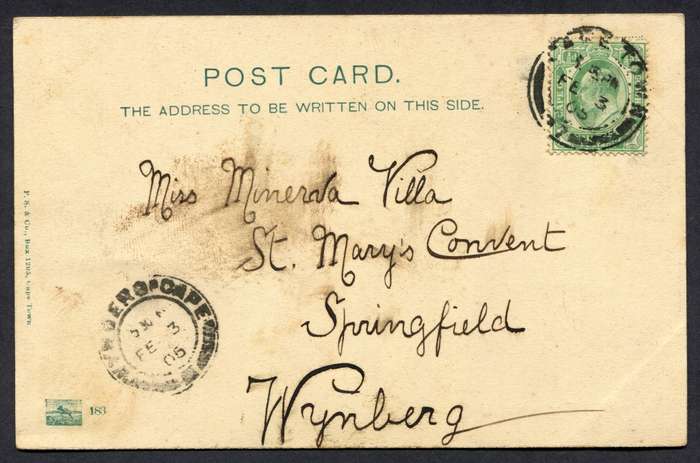 POST CARD.
THE ADDRESS TO BE WRITTEN ON THIS SIDE.
Miss Minerva Villa
St. Mary's Convent
Springfield
Wynberg
P. S. & Co., Box 1202, Cape Town.
183
CAPE TOWN
FE 3
05
BERG·CAPE
FE 3
05